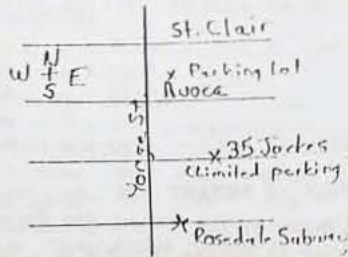 St. Clair
N
W E
S
x Parking lot
Avoca
Yonge St
x 35 Jackes
(limited parking)
x Rosedale Subway